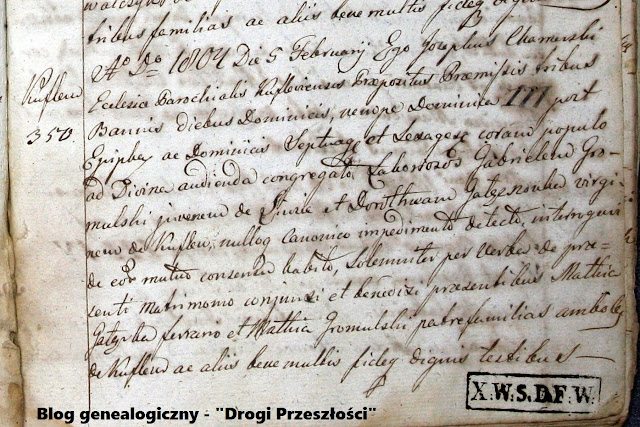 tribus familiais ac aliis bene multis fideq dignis
Ao Do 1804 Die 5 February Ego Josephus Chamerski
Kuflew
Ecclesia Parochialis Kufleviensis Præpositus Præmissis tribus
350.
Bannis diebus Dominicis, nempe Dominica III post
Epiphan ac Dominicis Septuag et Sexages coram populo
ad Divina audienda congregato Laboriosos Gabrielem Gro-
mulski juvenem de et Dorothaam virgi-
nem de Kuflew, nulloq Canonico impedimento detecto,
de eor mutuo consensu habito, Solemniter per Verba de præ-
senti Matrimonio conjunxi et benedixi præsentibus Mathia
et Mathia Gromulski patrefamilias ambobq
de Kuflew ac aliis bene multis fideq dignis testibus
X.W.S.D.F.W.
Blog genealogiczny - "Drogi Przeszłości"